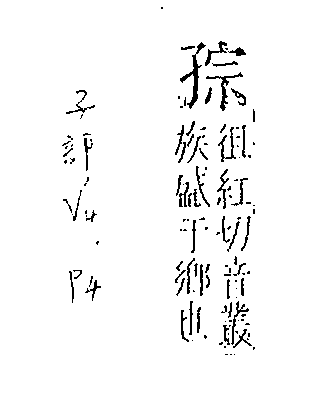 孮
徂紅切音叢
族盛于鄉也
子部 V4. P4